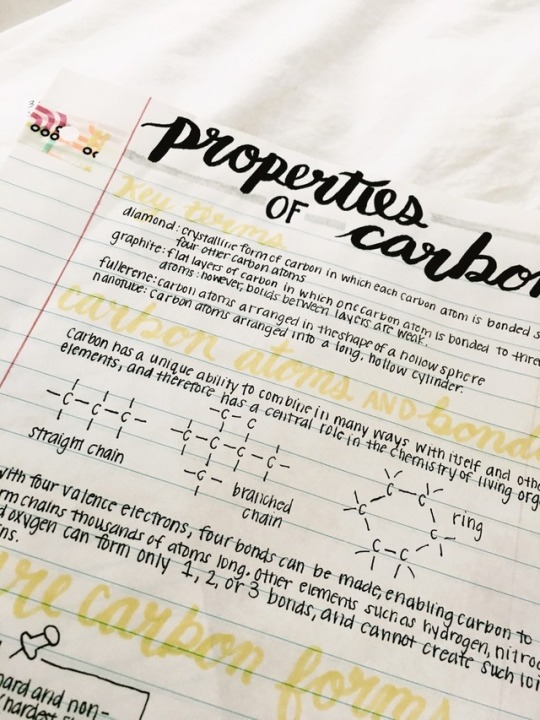 properties
OF carbon
Key terms
diamond: crystalline form of carbon in which each carbon atom is bonded
four other carbon atoms
graphite: flat layers of carbon in which one carbon atom is bonded to three
atoms; however, bonds between layers are weak.
fullerene: carbon atoms arranged in the shape of a hollow sphere
nanotube: carbon atoms arranged into a long, hollow cylinder.
carbon atoms AND bond
Carbon has a unique ability to combine in many ways with itself and
elements, and therefore has a central role in the chemistry of living
-C-C-C-
straight chain
-C-C
-C-C-C-C-
-C-
branched
chain
C-C
C C
C-C
ring
with four valence electrons, four bonds can be made, enabling carbon to
chains thousands of atoms long. Other elements such as hydrogen,
oxygen can form only 1, 2, or 3 bonds, and cannot create such
carbon forms
hard and non-
hardest